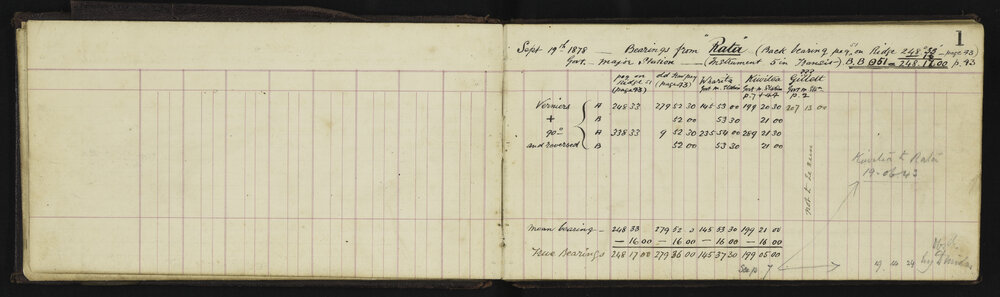 1
Sept 19th 1878 — Bearings from "Rata" (Back bearing peg on Ridge 248 33 — page 93)
Govt. — Major Station — (Instrument 5 in Transit) B.B. 248.17.00 p. 93
peg on Ridge (page 93) | old | Wharitā Govt M. Station | Kiwitea Govt M. Station p. 7 + 44 | Govt M. Stn p. 2
Verniers A 248 33 279 52 30 145 53 00 199 20 30 207 13 00
+ B 52 00 53 30 21 00
90° A 338 33 9 52 30 235 54 00 289 21 30
and reversed B 52 00 53 30 21 00
not to be seen
Kiwitea to Rata
19-06-43
mean bearing — 248 33 279 52 0 145 53 30 199 21 00
— 16 00 — 16 00 — 16 00 — 16 00
True Bearings 248 17 00 279 36 00 145 37 30 199 05 00
See p. 7